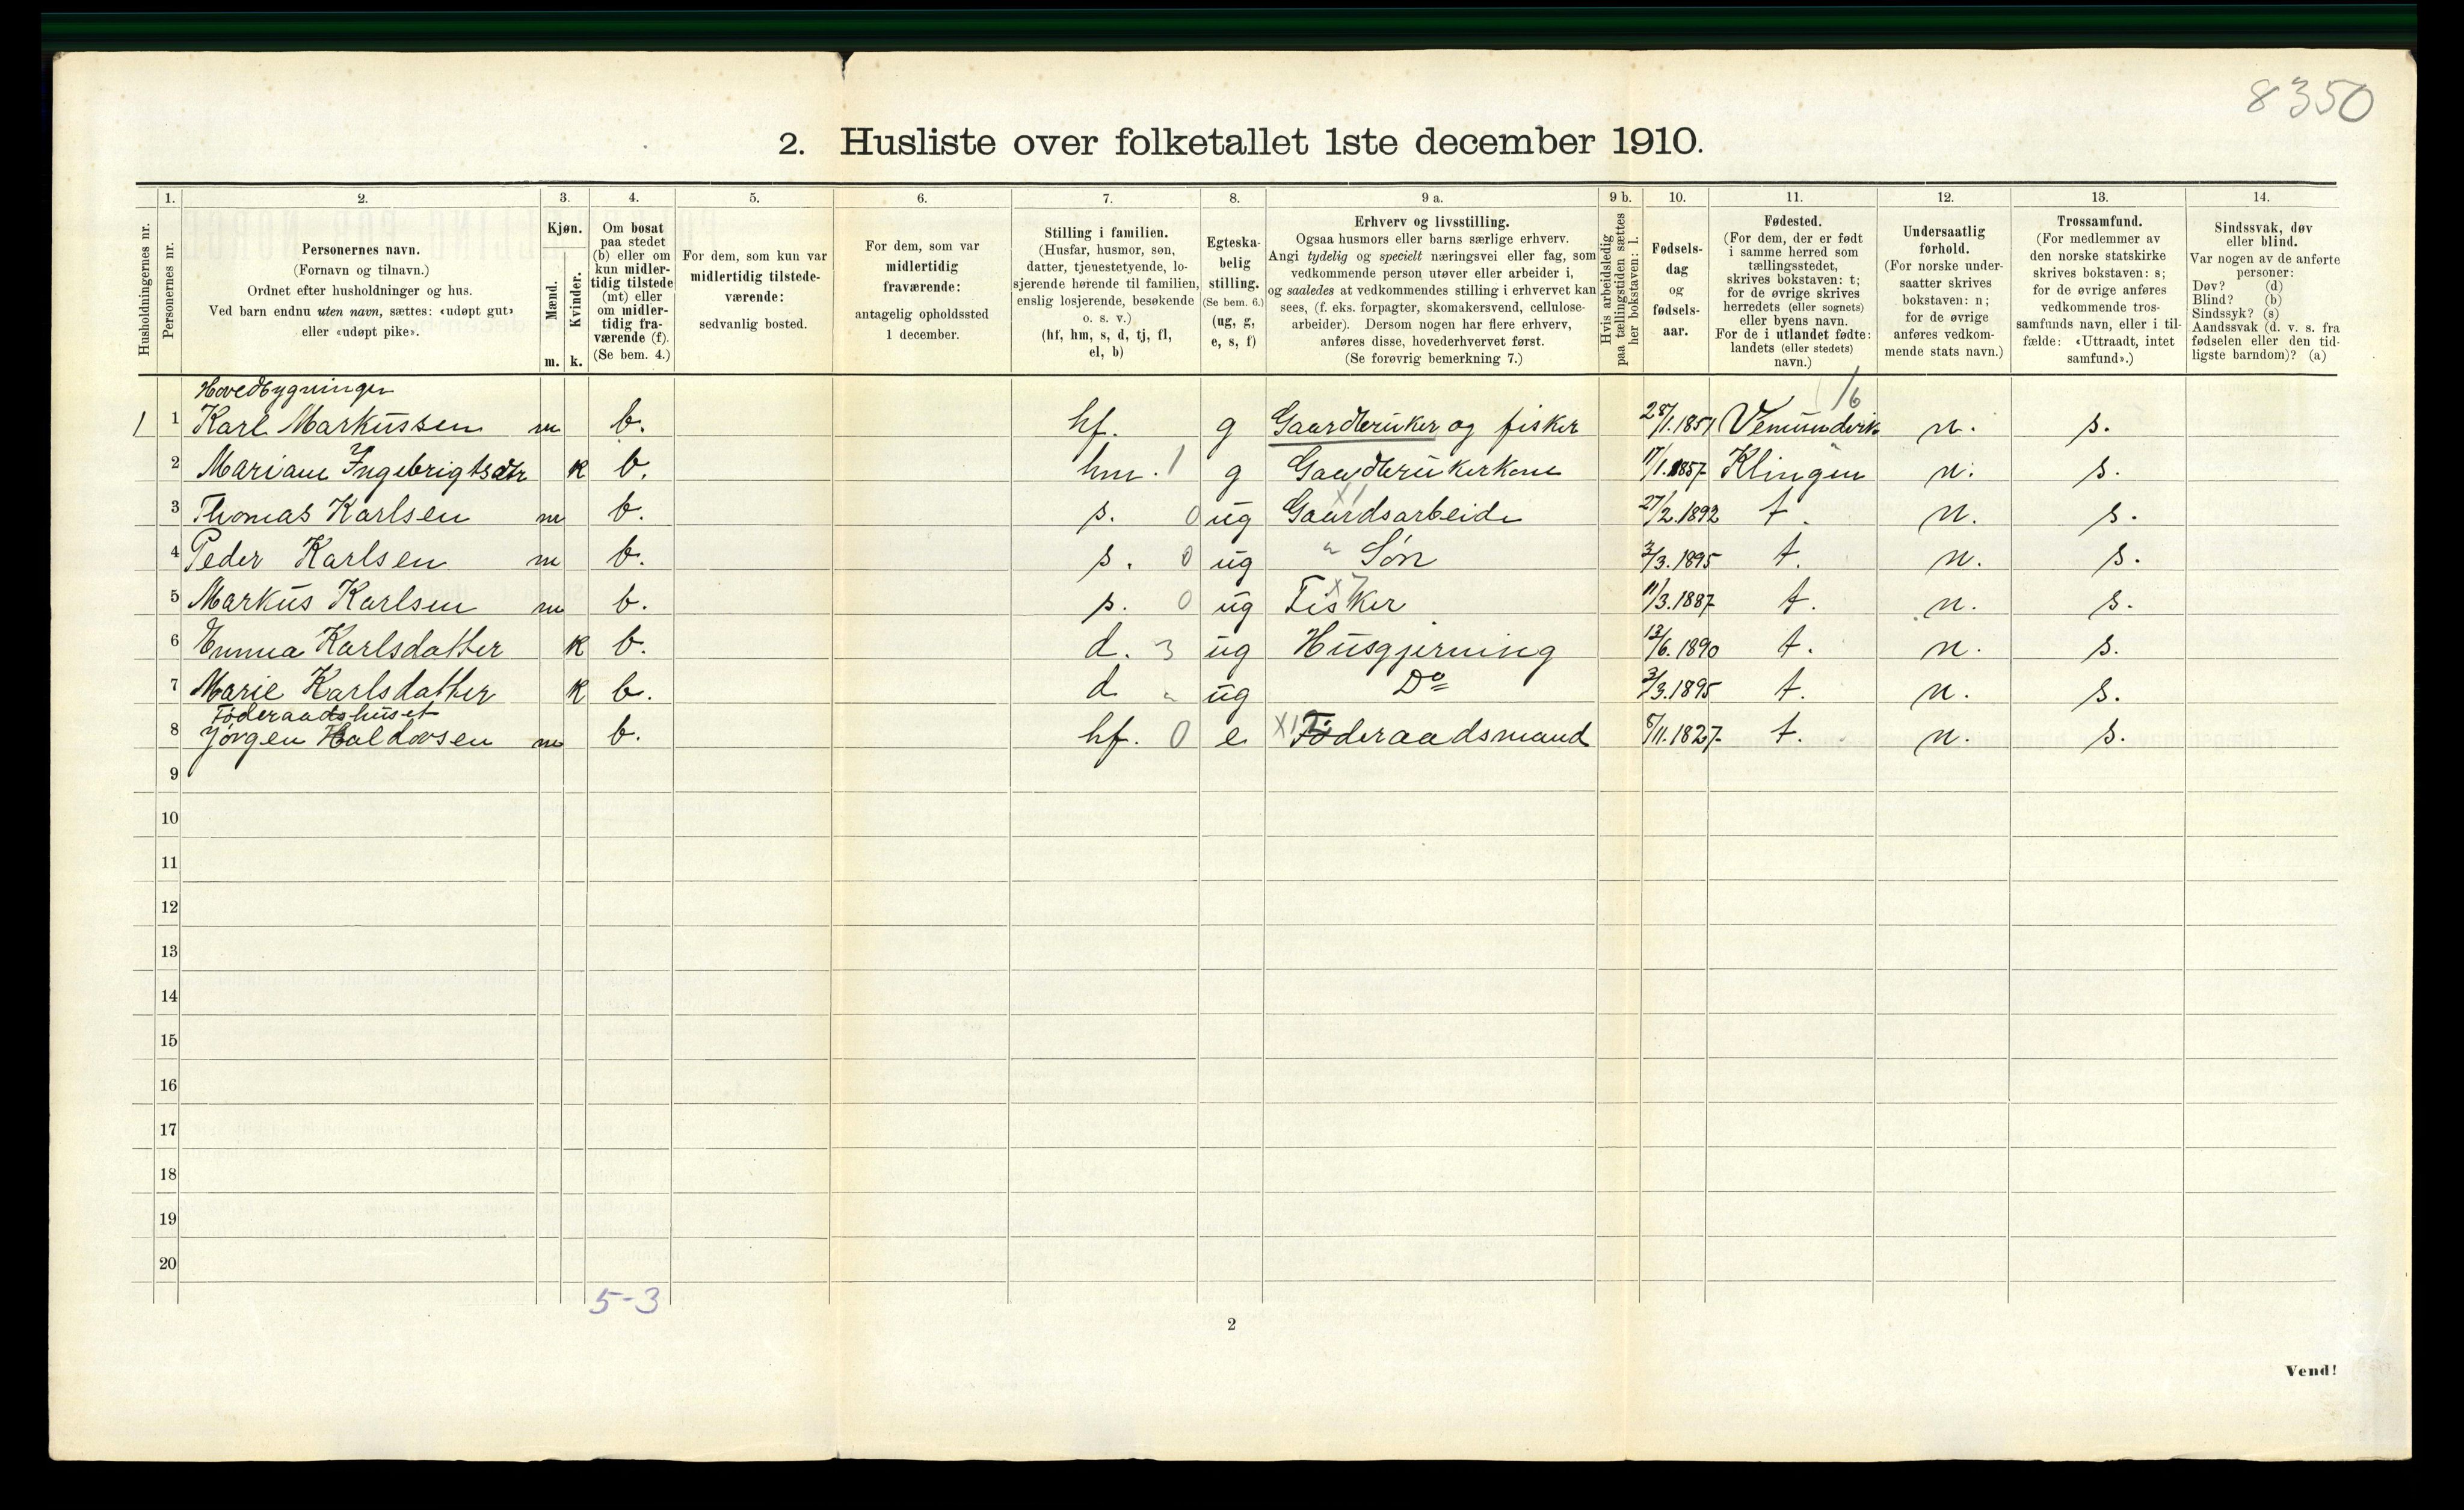 8350
2. Husliste over folketallet 1ste december 1910.
1. 2. 3. 4. 5. 6. 7. 8. 9 a. 9 b. 10. 11. 12. 13. 14.
Husholdningernes nr.
Personernes nr.
Personernes navn.
(Fornavn og tilnavn.)
Ordnet efter husholdninger og hus.
Ved barn endnu uten navn, sættes: «udøpt gut»
eller «udøpt pike».
Kjøn.
Mænd.
Kvinder.
m. k.
Om bosat
paa stedet
(b) eller om
kun midler-
tidig tilstede
(mt) eller
om midler-
tidig fra-
værende (f).
(Se bem. 4.)
For dem, som kun var
midlertidig tilstede-
værende:
sedvanlig bosted.
For dem, som var
midlertidig
fraværende:
antagelig opholdssted
1 december.
Stilling i familien.
(Husfar, husmor, søn,
datter, tjenestetyende, lo-
sjerende hørende til familien,
enslig losjerende, besøkende
o. s. v.)
(hf, hm, s, d, tj, fl,
el, b)
Egteska-
belig
stilling.
(Se bem. 6.)
(ug, g,
e, s, f)
Erhverv og livsstilling.
Ogsaa husmors eller barns særlige erhverv.
Angi tydelig og specielt næringsvei eller fag, som
vedkommende person utøver eller arbeider i,
og saaledes at vedkommendes stilling i erhvervet kan
sees, (f. eks. forpagter, skomakersvend, cellulose-
arbeider). Dersom nogen har flere erhverv,
anføres disse, hovederhvervet først.
(Se forøvrig bemerkning 7.)
Hvis arbeidsledig
paa tællingstiden sættes
her bokstaven: l.
Fødsels-
dag
og
fødsels-
aar.
Fødested.
(For dem, der er født
i samme herred som
tællingsstedet,
skrives bokstaven: t;
for de øvrige skrives
herredets (eller sognets)
eller byens navn.
For de i utlandet fødte:
landets (eller stedets)
navn.)
Undersaatlig
forhold.
(For norske under-
saatter skrives
bokstaven: n;
for de øvrige
anføres vedkom-
mende stats navn.)
Trossamfund.
(For medlemmer av
den norske statskirke
skrives bokstaven: s;
for de øvrige anføres
vedkommende tros-
samfunds navn, eller i til-
fælde: «Uttraadt, intet
samfund».)
Sindssvak, døv
eller blind.
Var nogen av de anførte
personer:
Døv? (d)
Blind? (b)
Sindssyk? (s)
Aandssvak (d. v. s. fra
fødselen eller den tid-
ligste barndom)? (a)
Hovedbygningen
16
1 1 Karl Markussen m b. hf. g Gaardbruker og fisker 28/1.1851 n. s.
2 Mariane Ingebrigtsdtr k b. hm. 1 g Gaardbrukerkone 17/1.1857 Klingen n. s.
X1
3 Thomas Karlsen m b. s. 0 ug Gaardsarbeide 27/2.1892 t. n. s.
4 Peder Karlsen m b. s. 0 ug " Søn 3/3.1895 t. n. s.
X7
5 Markus Karlsen m b. s. 0 ug Fisker 11/3.1887 t. n. s.
6 Emma Karlsdatter k b. d. 3 ug Husgjerning 13/6.1890 t. n. s.
7 Marie Karlsdatter k b. d " ug Do 3/3.1895 t. n. s.
Føderaadshuset
8 Jørgen Haldorsen m b. hf. 0 e Føderaadsmand 8/11.1827 t. n. s.
9
10
11
12
13
14
15
16
17
18
19
20
5-3
2
Vend!